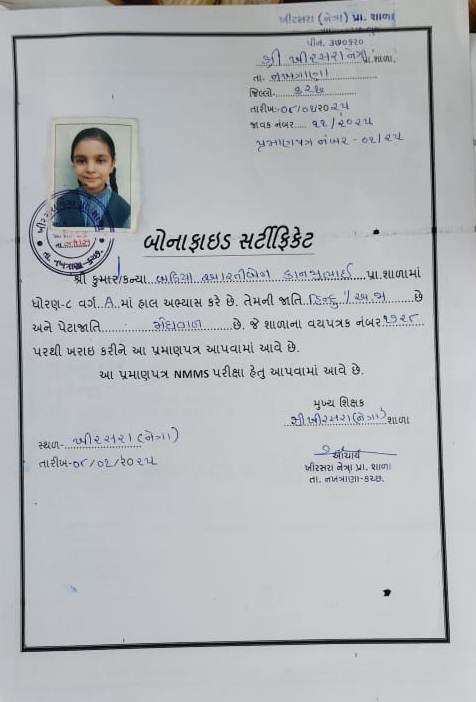 ખીરસરા (નેત્રા) પ્રા. શાળા
પીન. ૩૭૦૬૨૦
શ્રી ખીરસરા(નેત્રા) પ્રા. શાળા.
તા. નખત્રાણા
જિલ્લો. કચ્છ
તારીખ-૦૮/૦૨/૨૦૨૫
જાવક નંબર..... ૧૨/૨૦૨૫
પ્રમાણપત્ર નંબર - ૦૨/૨૫
તા. નખત્રાણા-કચ્છ.
બોનાફાઇડ સર્ટીફિકેટ
શ્રી કુમાર/કન્યા આરતીબેન કાનજીભાઈ પ્રા.શાળામાં
ધોરણ-૮ વર્ગ A માં હાલ અભ્યાસ કરે છે. તેમની જાતિ હિન્દુ / અ.જા છે
અને પેટાજાતિ મેઘવાળ છે. જે શાળાના વયપત્રક નંબર
પરથી ખરાઇ કરીને આ પ્રમાણપત્ર આપવામાં આવે છે.
આ પ્રમાણપત્ર NMMS પરીક્ષા હેતુ આપવામાં આવે છે.
મુખ્ય શિક્ષક
શ્રી ખીરસરા(નેત્રા) શાળા
સ્થળ- ખીરસરા (નેત્રા)
તારીખ-૦૮/૦૨/૨૦૨૫
આચાર્ય
ખીરસરા નેત્રા પ્રા. શાળા
તા. નખત્રાણા-કચ્છ.